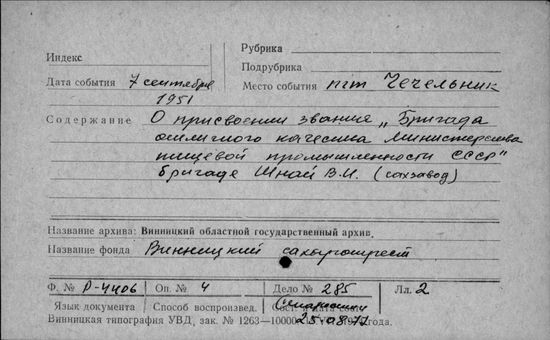 Индекс
Рубрика
Подрубрика
Дата события 7 сентября 1951
Место события пгт Чечельник
Содержание О присвоении звания „Бригада
отличного качества Министерства
пищевой промышленности СССР"
бригаде Шнай В.И. (сахзавод)
Название архива: Винницкий областной государственный архив.
Название фонда Винницкий сахаротрест
Ф. № Р-4406 Оп. № 4 Дело № 285 Лл. 2
Язык документа Способ воспроизвед. Сост. и дата сост.
25.08.77
Винницкая типография УВД, зак. № 1263—10000 года.